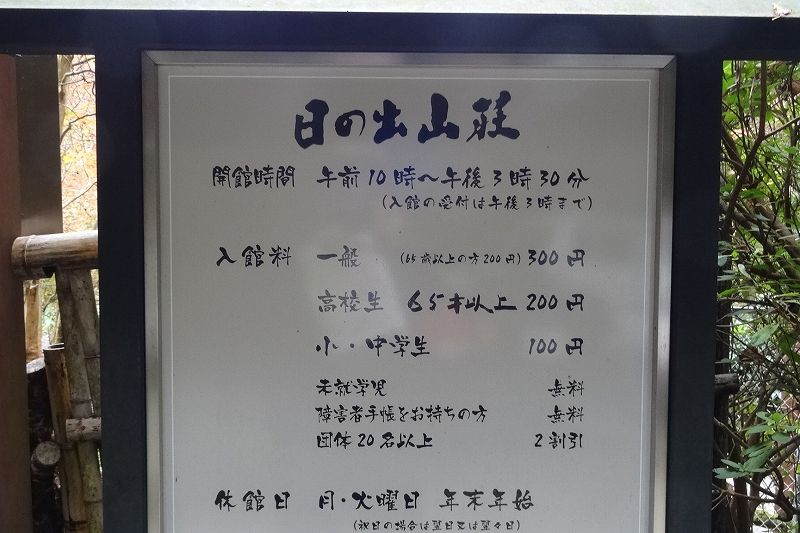 日の出山荘
開館時間 午前10時~午後3時30分
(入館の受付は午後3時まで)
入館料 一般 (65歳以上の方200円) 300円
高校生 65才以上 200円
小・中学生 100円
未就学児 無料
障害者手帳をお持ちの方 無料
団体20名以上 2割引
休館日 月・火曜日 年末年始
(祝日の場合は翌日又は翌々日)